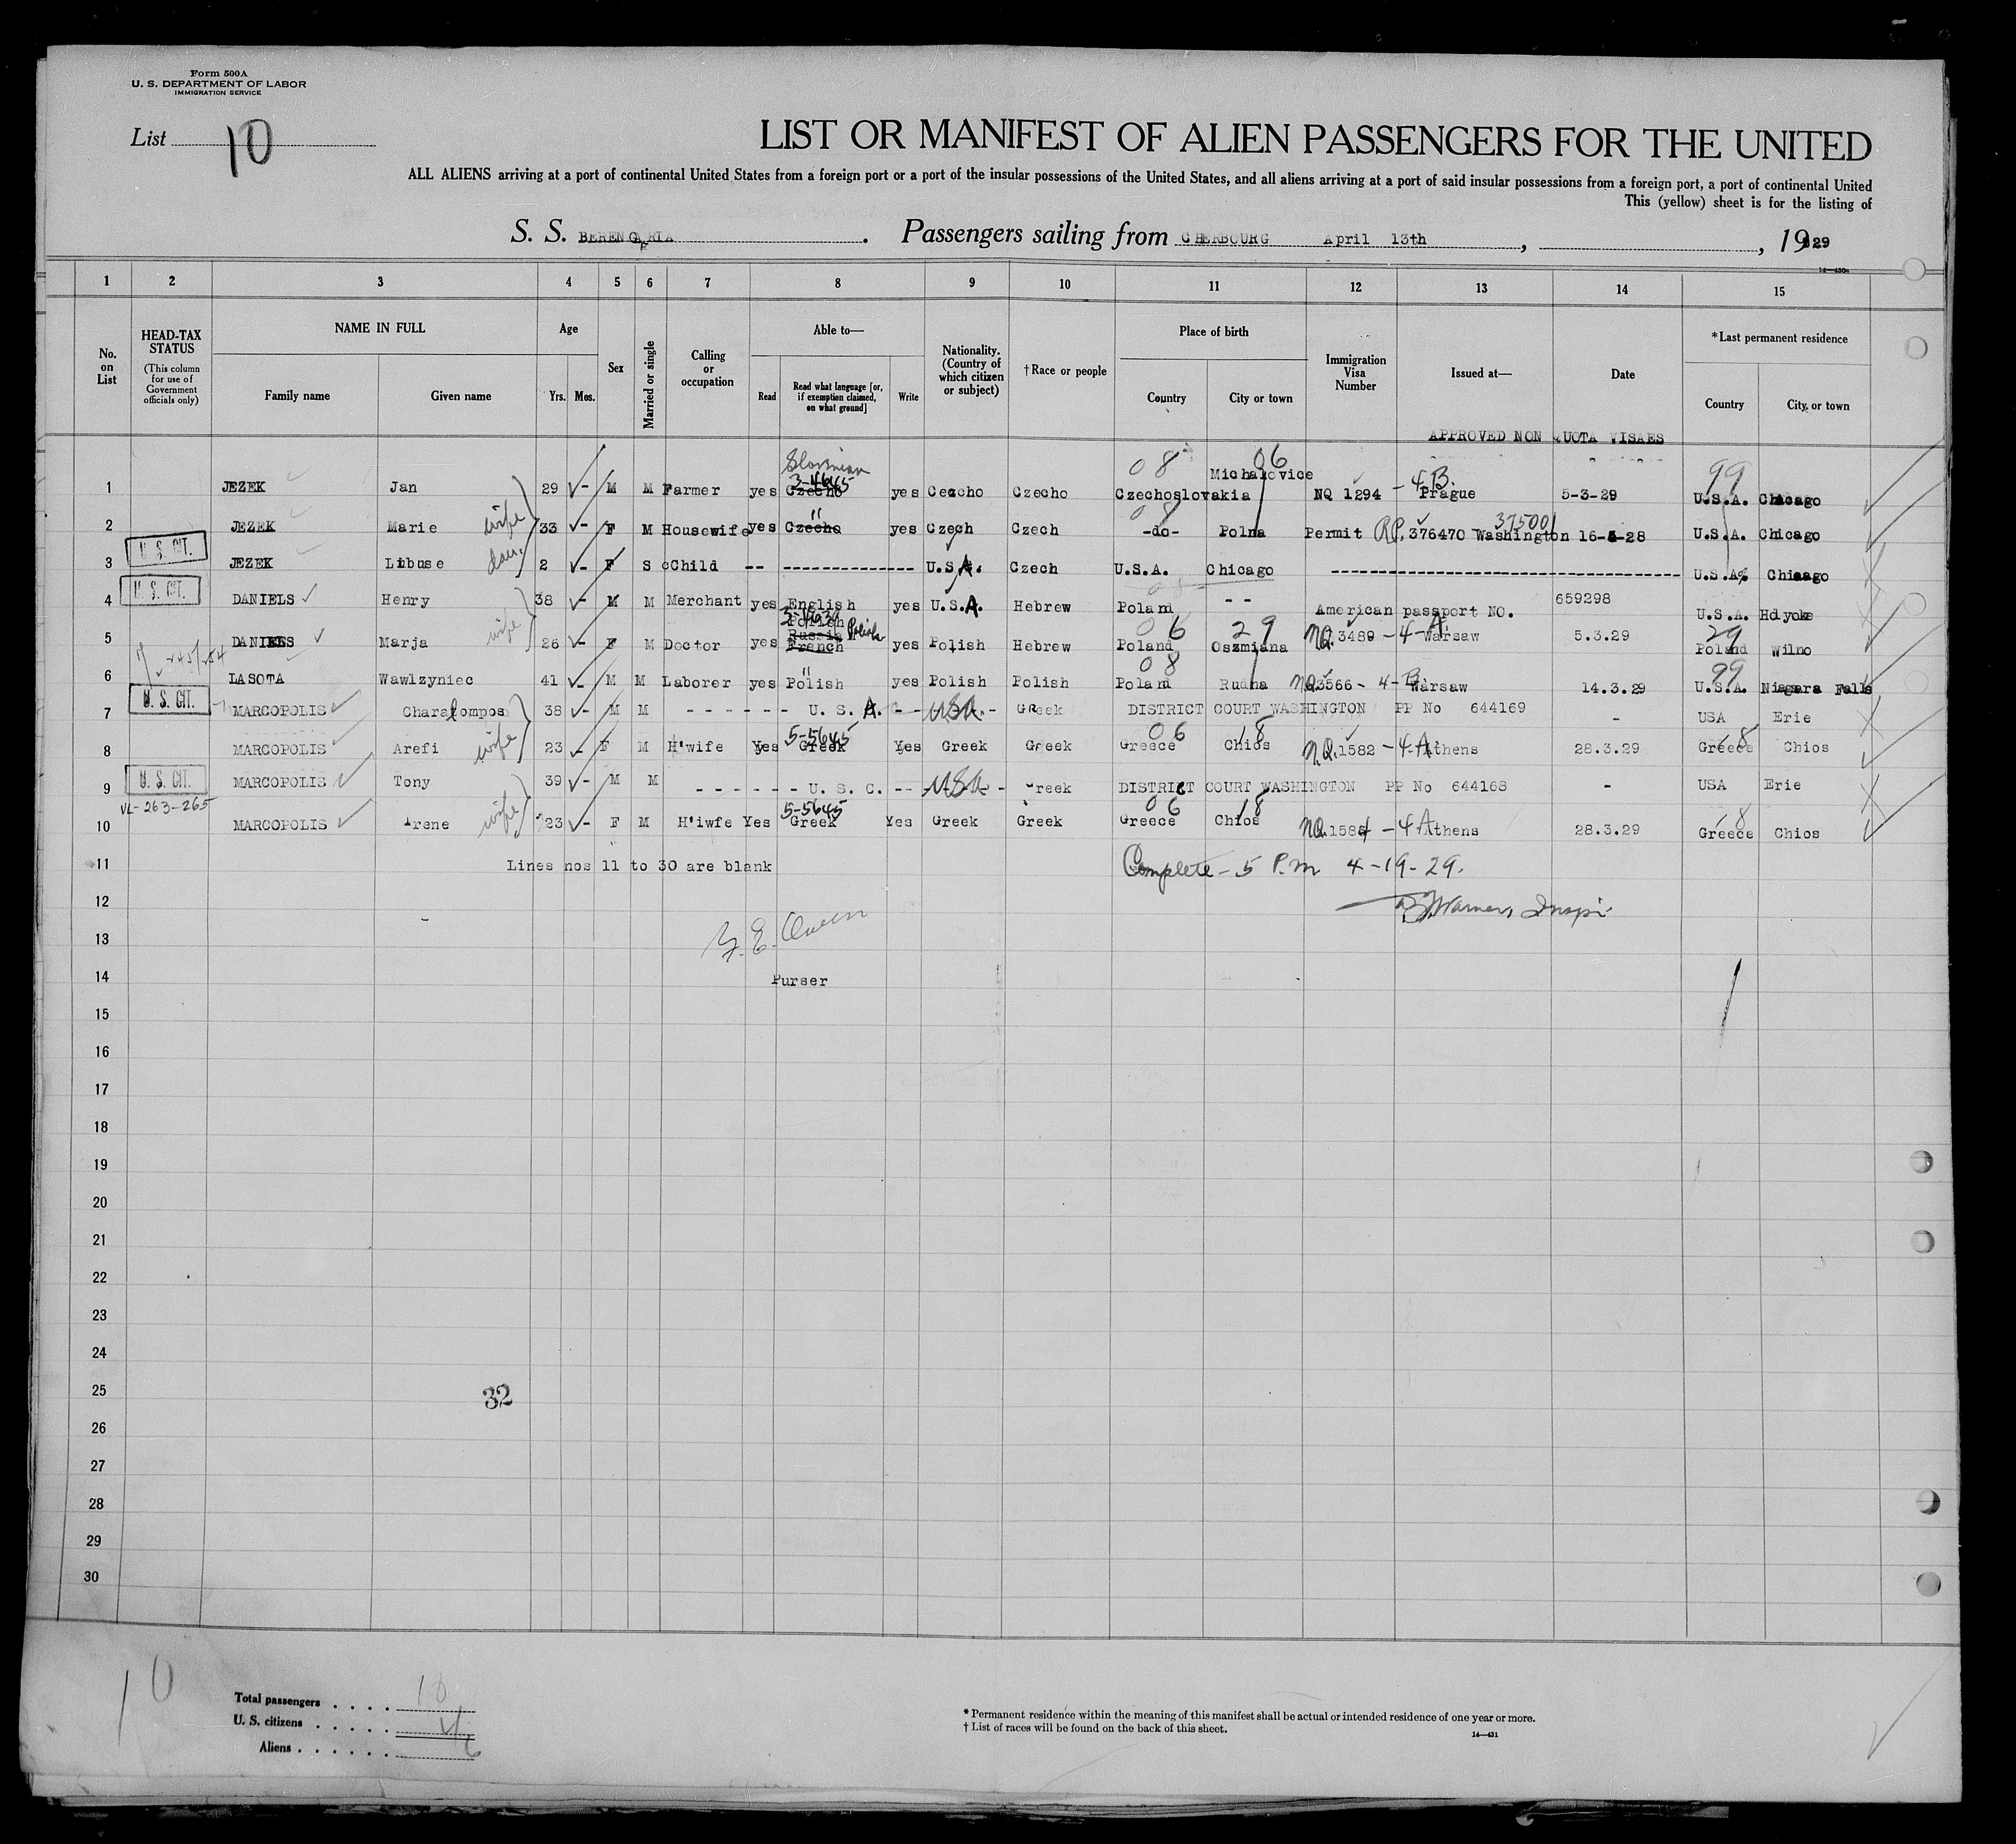 Form 500A
U. S. DEPARTMENT OF LABOR
IMMIGRATION SERVICE
List 10
LIST OR MANIFEST OF ALIEN PASSENGERS FOR THE UNITED
ALL ALIENS arriving at a port of continental United States from a foreign port or a port of the insular possessions of the United States, and all aliens arriving at a port of said insular possessions from a foreign port, a port of continental United
This (yellow) sheet is for the listing of
S. S. BERENGARIA. Passengers sailing from CHERBOURG April 13th, , 1929
14—430a
1 2 3 4 5 6 7 8 9 10 11 12 13 14 15
No. on List
HEAD-TAX STATUS (This column for use of Government officials only)
NAME IN FULL Family name Given name
Age Yrs. Mos.
Sex
Married or single
Calling or occupation
Able to— Read Read what language [or, if exemption claimed, on what ground] Write
Nationality. (Country of which citizen or subject)
†Race or people
Place of birth Country City or town
Immigration Visa Number
Issued at—
Date
*Last permanent residence Country City or town
APPROVED NON QUOTA VISAES
Slovenian 08 06 99
1 JEZEK Jan 29 - M M Farmer yes Czecho 3-4645 yes Cecho Czecho Czechoslovakia Michalovice NQ 1294 - 4B. Prague 5-3-29 U.S.A. Chicago
2 JEZEK Marie wife 33 - F M Housewife yes Czecho " yes Czech Czech 08 -do- Polna Permit RP. 376470 375001 Washington 16-5-28 U.S.A. Chicago
U. S. CIT.
3 JEZEK Libuse dau. 2 - F S cChild -- -------------- U.S.A. Czech U.S.A. Chicago ------------------------------ U.S.A. Chicago
U. S. CIT.
4 DANIELS Henry 38 - M M Merchant yes English yes U.S.A. Hebrew Poland -- American passport NO. 659298 U.S.A. Holyoke
5 DANIELS Marja wife 26 - F M Doctor yes Polish Russia French Polish yes Polish Hebrew 06 Poland 29 Oszmiana NQ. 3489 - 4-A. Warsaw 5.3.29 29 Poland Wilno
6 LASOTA Wawlzyniec 41 - M M Laborer yes Polish " yes Polish Polish 08 Poland Rudna NQ 3566 - 4-B. Warsaw 14.3.29 99 U.S.A. Niagara Falls
U. S. CIT.
7 MARCOPOLIS Charalompos 38 - M M - - - - - - U. S. A. -- USA. - Greek DISTRICT COURT WASHINGTON PP No 644169 - USA Erie
8 MARCOPOLIS Arefi wife 23 - F M H'wife Yes 5-5645 Greek Yes Greek Greek 06 Greece 18 Chios NQ.1582 - 4A. Athens 28.3.29 Greece 18 Chios
U. S. CIT.
9 MARCOPOLIS Tony 39 - M M - - - - - - U. S. C. -- USA - Greek DISTRICT COURT WASHINGTON PP No 644168 - USA Erie
VL-263-265
10 MARCOPOLIS Irene wife 23 - F M H'iwfe Yes 5-5645 Greek Yes Greek Greek 06 Greece 18 Chios NQ.1584 - 4A Athens 28.3.29 Greece 18 Chios
11 Lines nos 11 to 30 are blank Complete - 5 P.m 4-19-29.
12 Warner, Inspr
13
14 Purser
15
16
17
18
19
20
21
22
23
24
25 32
26
27
28
29
30
10
Total passengers . . . . 10
U. S. citizens . . . . . 4
Aliens . . . . . . 6
* Permanent residence within the meaning of this manifest shall be actual or intended residence of one year or more.
† List of races will be found on the back of this sheet.
14—431